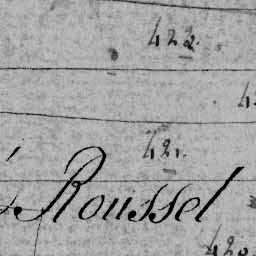 422.
421.
Roussel
420